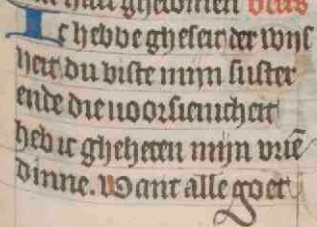 hebben ghewonnen deus
Ic hebbe gheseit der wijs
heit du biste mijn suster
ende die uoorsienicheit
heb ic gheheten mijn vriē
dinne. Want alle goet